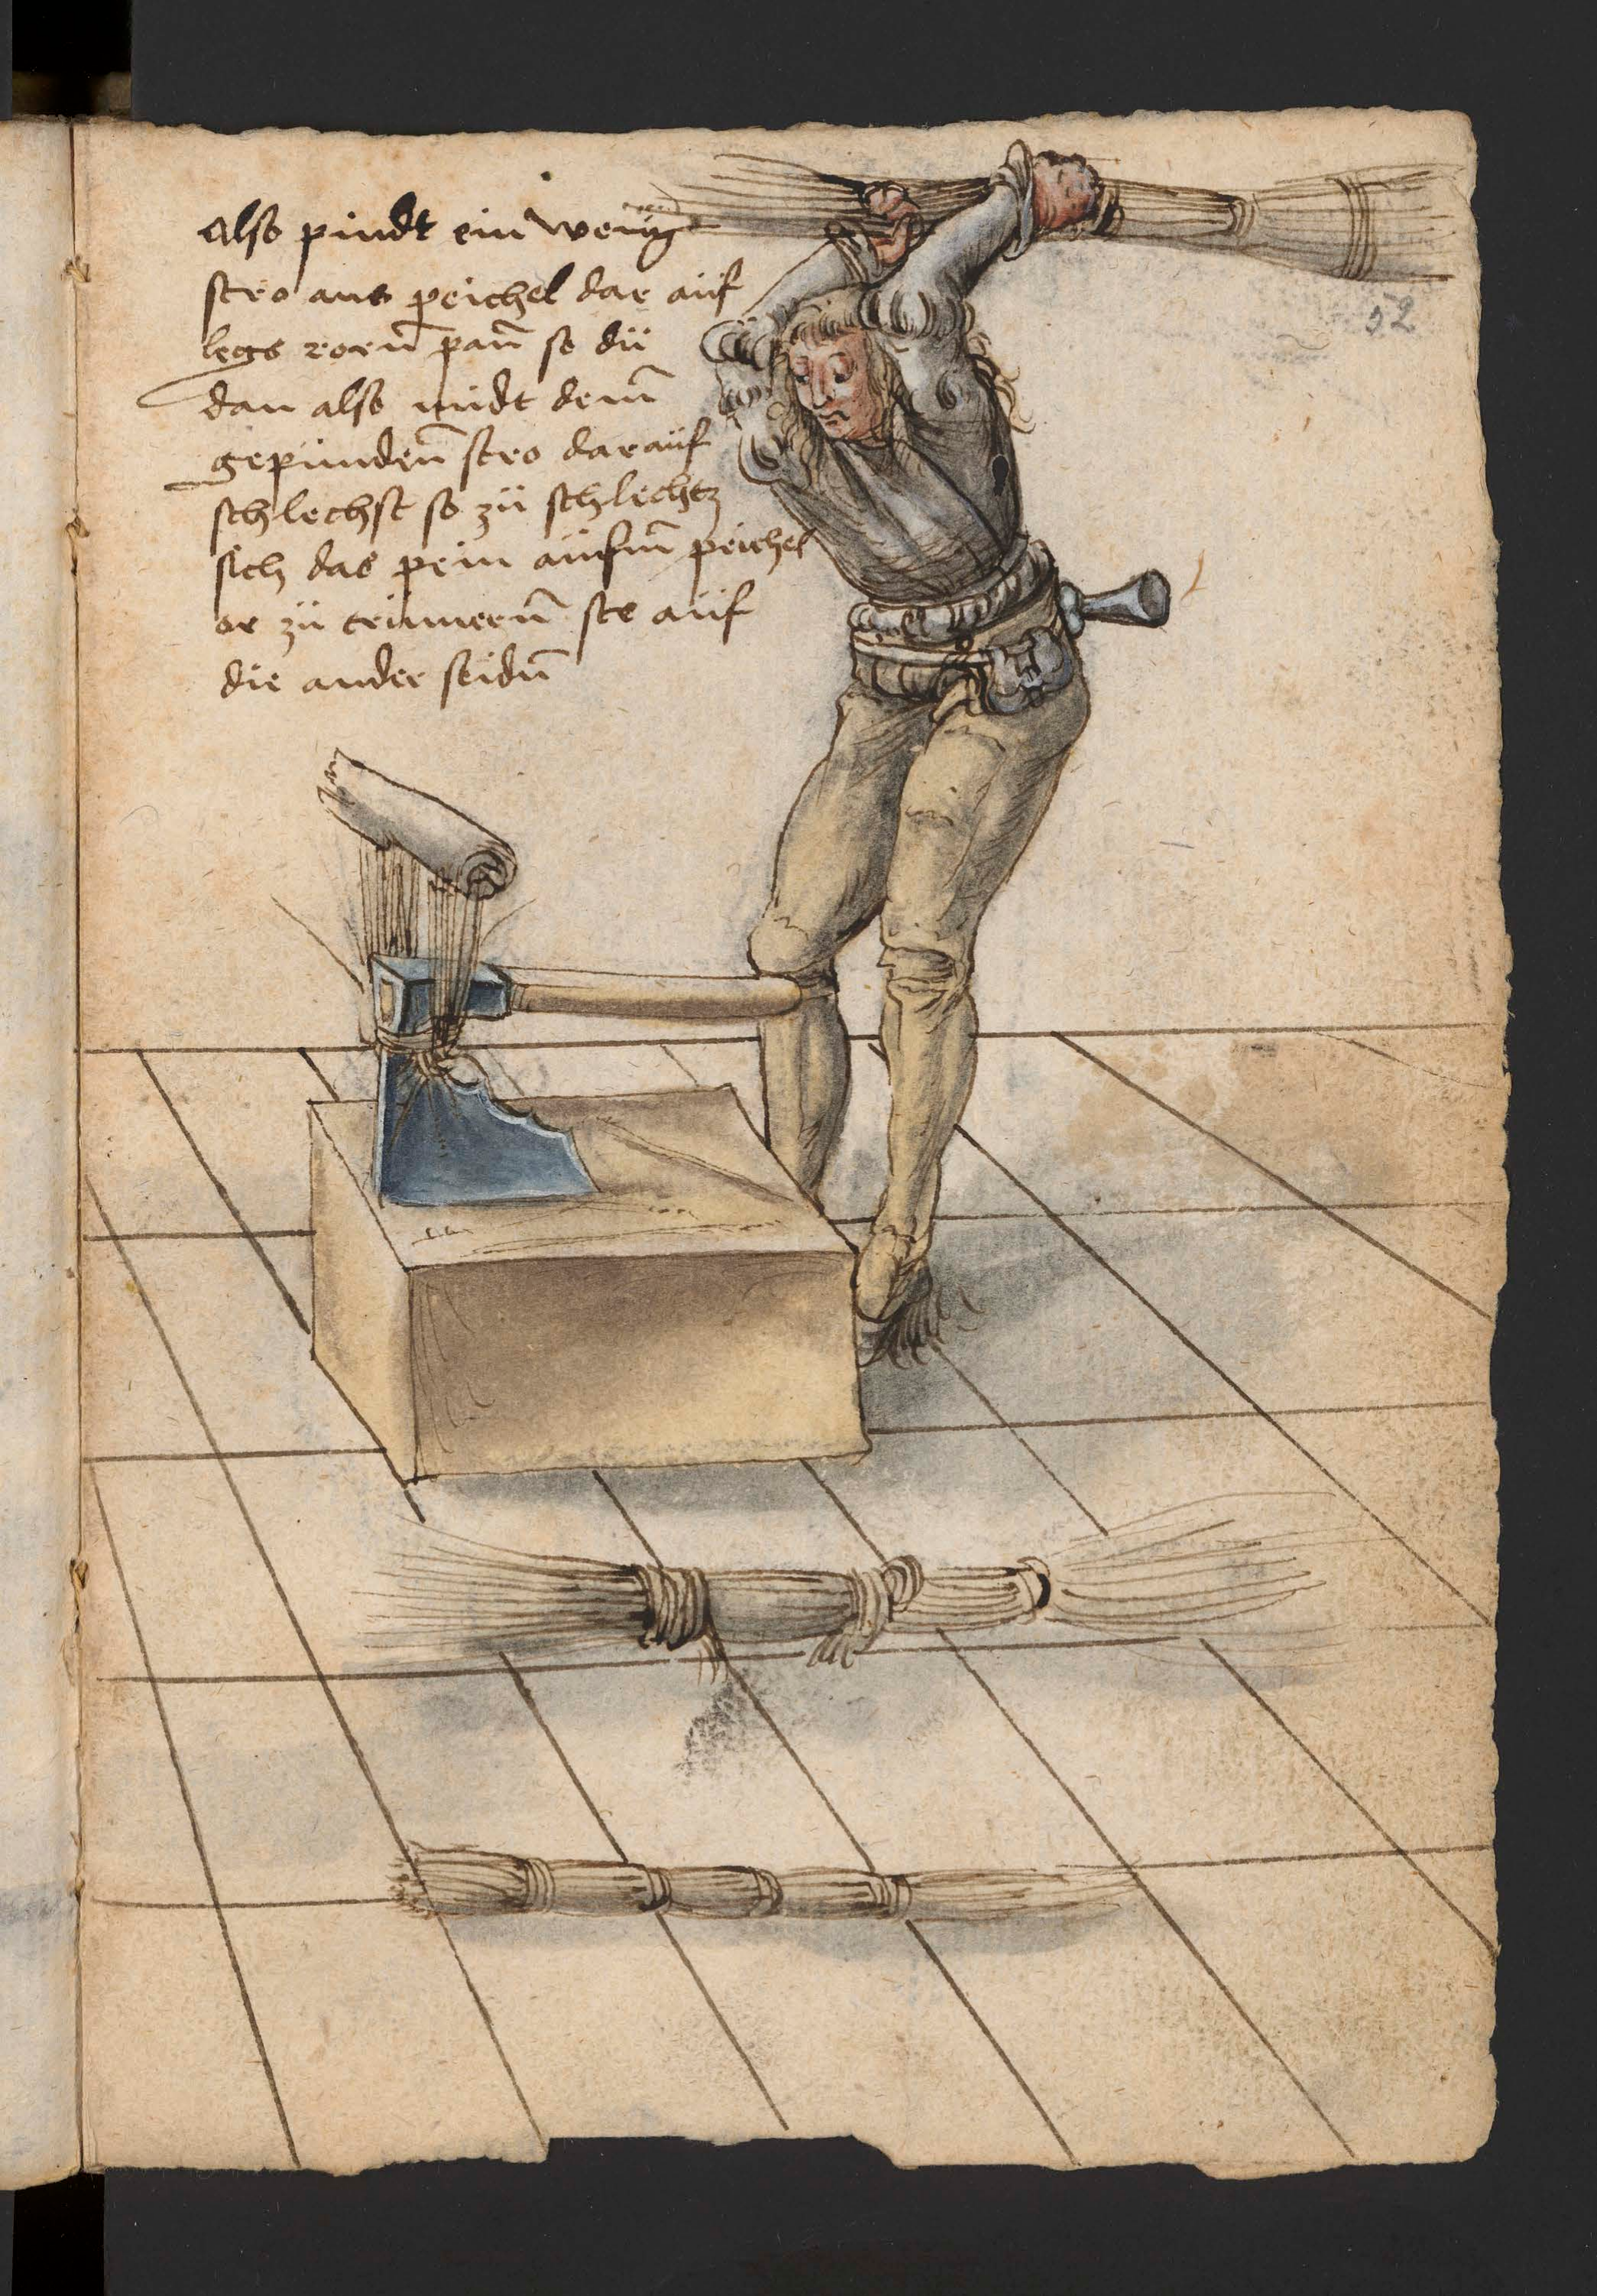 also pindt ein wenig
stro ans peichel dar auf
legs rorn̄ pain̄ so dü
dan also midt dem̄
gepunden̄ stro darauf
schlechst so zü schlechtz
sich das pein aufm̄ peichel
or zü trümern̄ ste auf
die ander seidn̄
52